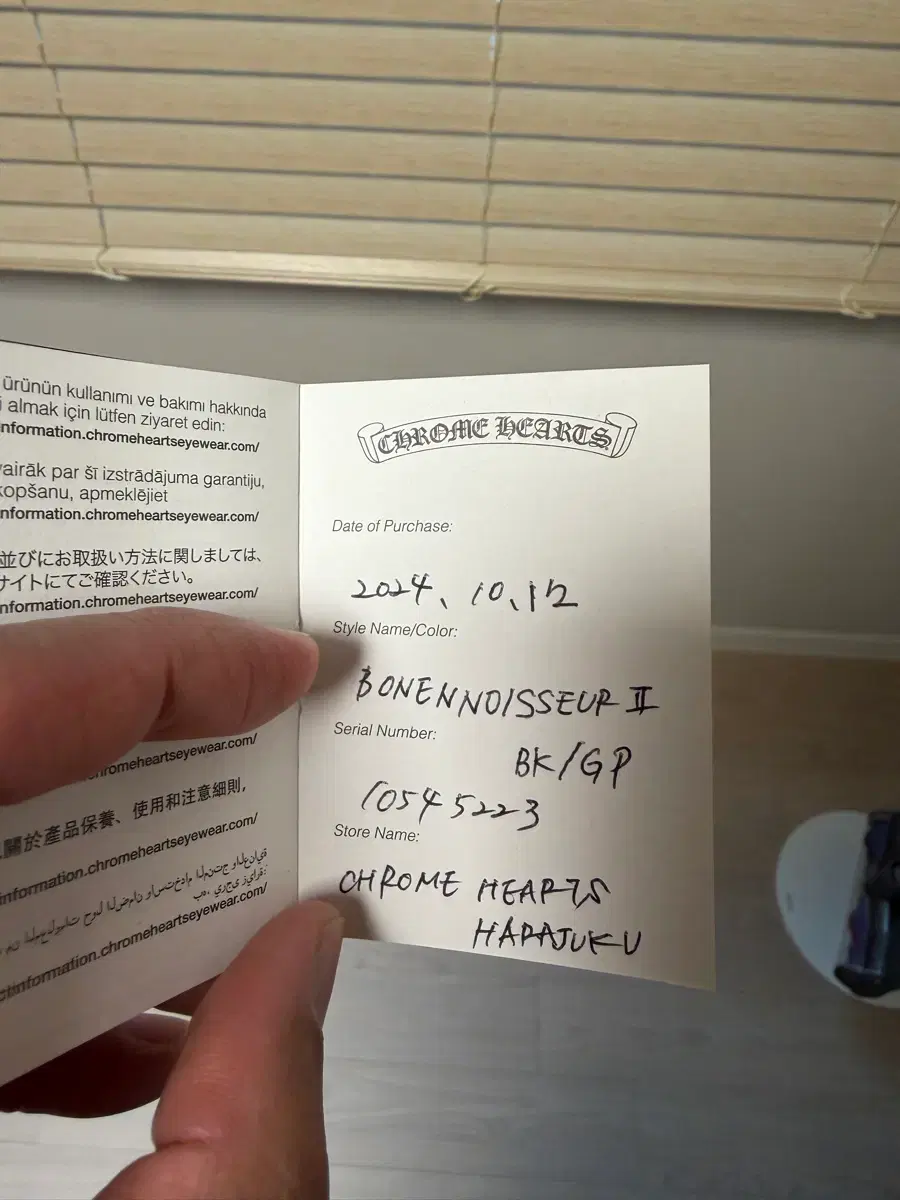 ürünün kullanımı ve bakımı hakkında
almak için lütfen ziyaret edin:
nformation.chromeheartseyewear.com/
vairāk par šī izstrādājuma garantiju,
kopšanu, apmeklējiet
nformation.chromeheartseyewear.com/
並びにお取扱い方法に関しましては、
サイトにてご確認ください。
nformation.chromeheartseyewear.com/
chromeheartseyewear.com/
關於產品保養、使用和注意細則,
information.chromeheartseyewear.com/
من المعلومات حول الضمان واستخدام المنتج والعناية
به، يرجى زيارة:
information.chromeheartseyewear.com/
CHROME HEARTS
Date of Purchase:
2024、10、12
Style Name/Color:
BONENNOISSEUR II
BK/GP
Serial Number:
10545223
Store Name:
CHROME HEARTS
HARAJUKU